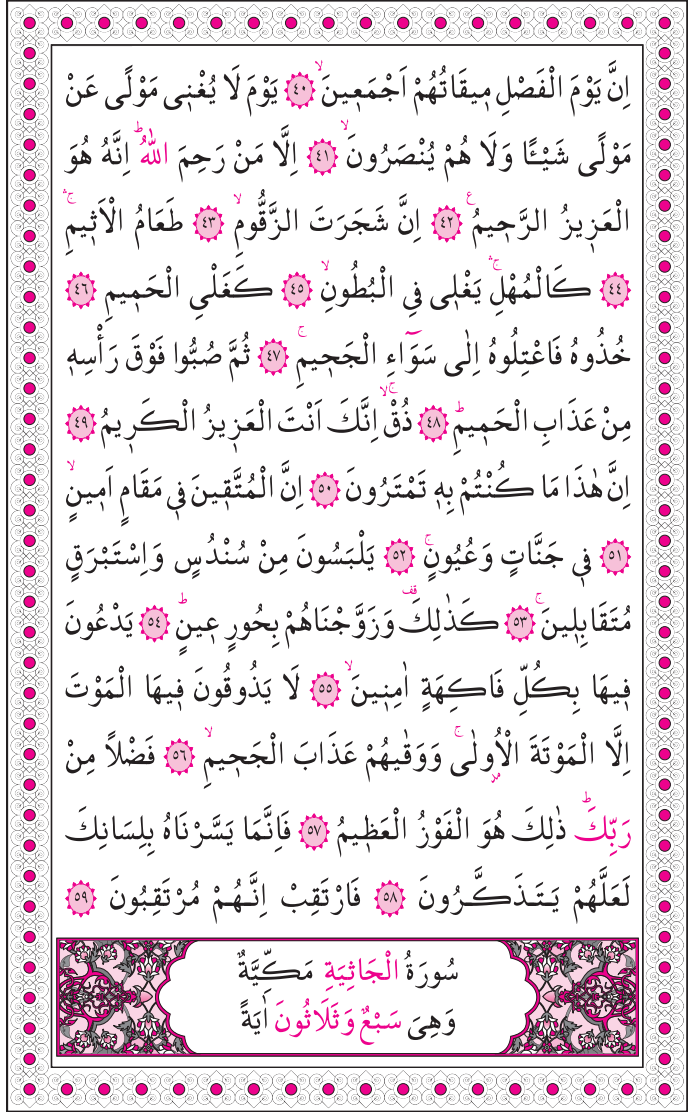 اِنَّ يَوْمَ الْفَصْلِ مٖيقَاتُهُمْ اَجْمَعٖينَۙ ﴿٤٠﴾ يَوْمَ لَا يُغْنٖى مَوْلًى عَنْ
مَوْلًى شَيْـًٔا وَلَا هُمْ يُنْصَرُونَۙ ﴿٤١﴾ اِلَّا مَنْ رَحِمَ اللّٰهُؕ اِنَّهُ هُوَ
الْعَزٖيزُ الرَّحٖيمُࣖ ﴿٤٢﴾ اِنَّ شَجَرَتَ الزَّقُّومِۙ ﴿٤٣﴾ طَعَامُ الْاَثٖيمِۚۛ
﴿٤٤﴾ كَالْمُهْلِۚۛ يَغْلٖى فِى الْبُطُونِۙ ﴿٤٥﴾ كَغَلْىِ الْحَمٖيمِ ﴿٤٦﴾
خُذُوهُ فَاعْتِلُوهُ اِلٰى سَوَٓاءِ الْجَحٖيمِۚ ﴿٤٧﴾ ثُمَّ صُبُّوا فَوْقَ رَأْسِهٖ
مِنْ عَذَابِ الْحَمٖيمِؕ ﴿٤٨﴾ ذُقْۚۙ اِنَّكَ اَنْتَ الْعَزٖيزُ الْكَرٖيمُ ﴿٤٩﴾
اِنَّ هٰذَا مَا كُنْتُمْ بِهٖ تَمْتَرُونَ ﴿٥٠﴾ اِنَّ الْمُتَّقٖينَ فٖى مَقَامٍ اَمٖينٍۙ
﴿٥١﴾ فٖى جَنَّاتٍ وَعُيُونٍۚ ﴿٥٢﴾ يَلْبَسُونَ مِنْ سُنْدُسٍ وَاِسْتَبْرَقٍ
مُتَقَابِلٖينَۚ ﴿٥٣﴾ كَذٰلِكَ قف وَزَوَّجْنَاهُمْ بِحُورٍ عٖينٍؕ ﴿٥٤﴾ يَدْعُونَ
فٖيهَا بِكُلِّ فَاكِهَةٍ اٰمِنٖينَۙ ﴿٥٥﴾ لَا يَذُوقُونَ فٖيهَا الْمَوْتَ
اِلَّا الْمَوْتَةَ الْاُو۫لٰىۚ وَوَقٰيهُمْ عَذَابَ الْجَحٖيمِۙ ﴿٥٦﴾ فَضْلاً مِنْ
رَبِّكَؕ ذٰلِكَ هُوَ الْفَوْزُ الْعَظٖيمُ ﴿٥٧﴾ فَاِنَّمَا يَسَّرْنَاهُ بِلِسَانِكَ
لَعَلَّهُمْ يَتَذَكَّرُونَ ﴿٥٨﴾ فَارْتَقِبْ اِنَّهُمْ مُرْتَقِبُونَ ﴿٥٩﴾
سُورَةُ الْجَاثِيَةِ مَكِّيَّةٌ
وَهِىَ سَبْعٌ وَثَلَاثُونَ اٰيَةً